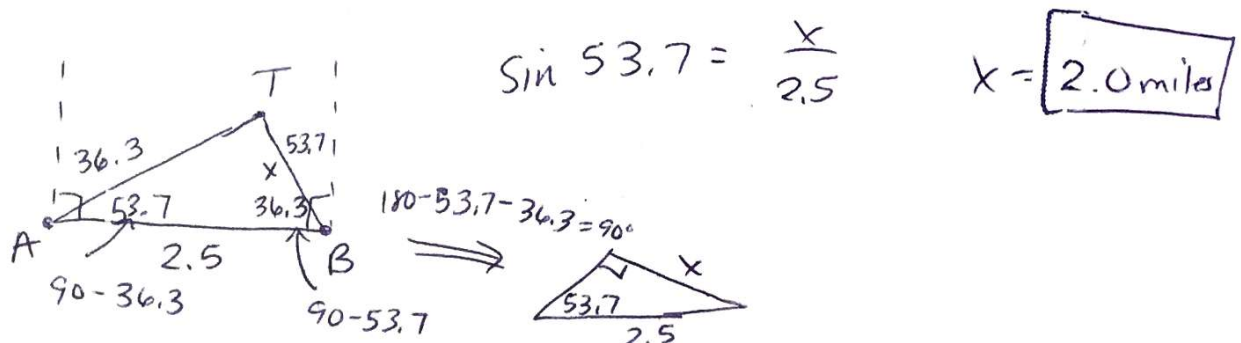 Sin 53.7 = x/2.5
x = 2.0 miles
T
36.3
53.7
x
53.7
36.3
A
2.5
B
90-36.3
90-53.7
180-53.7-36.3=90°
x
53.7
2.5